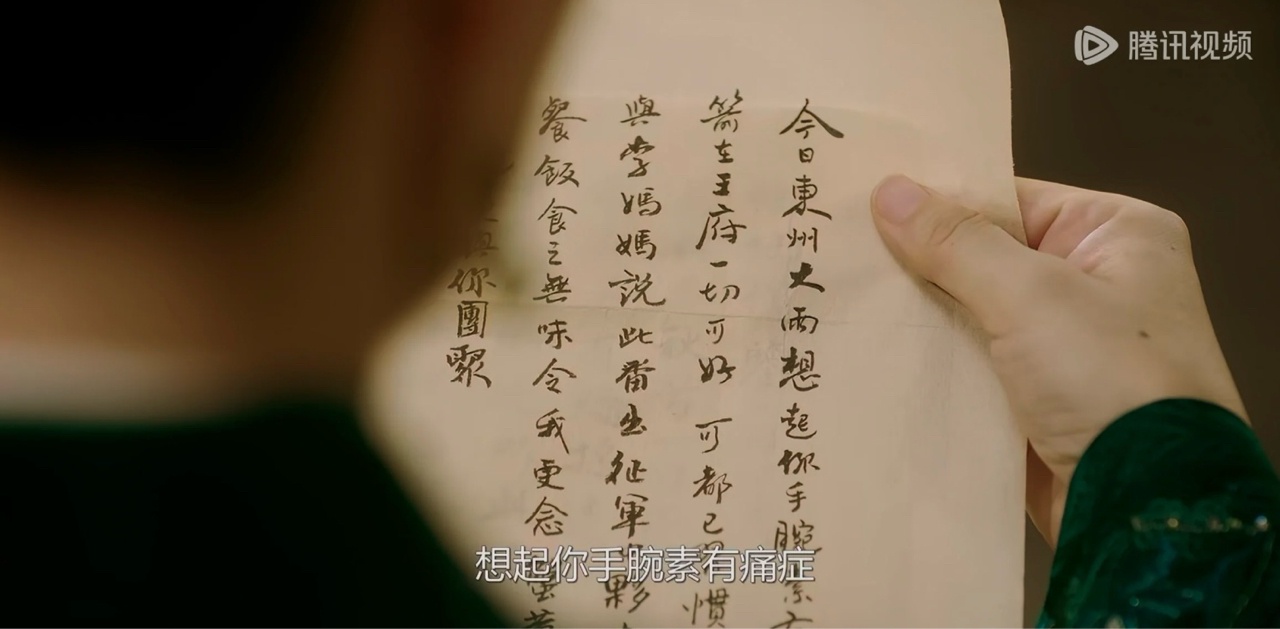 腾讯视频
今日東州大雨想起你手腕素有
箭在王府一切可好 可都已習慣
與李媽媽說此番出征軍中夥
餐飯食之無味令我更念
你團聚
想起你手腕素有痛症